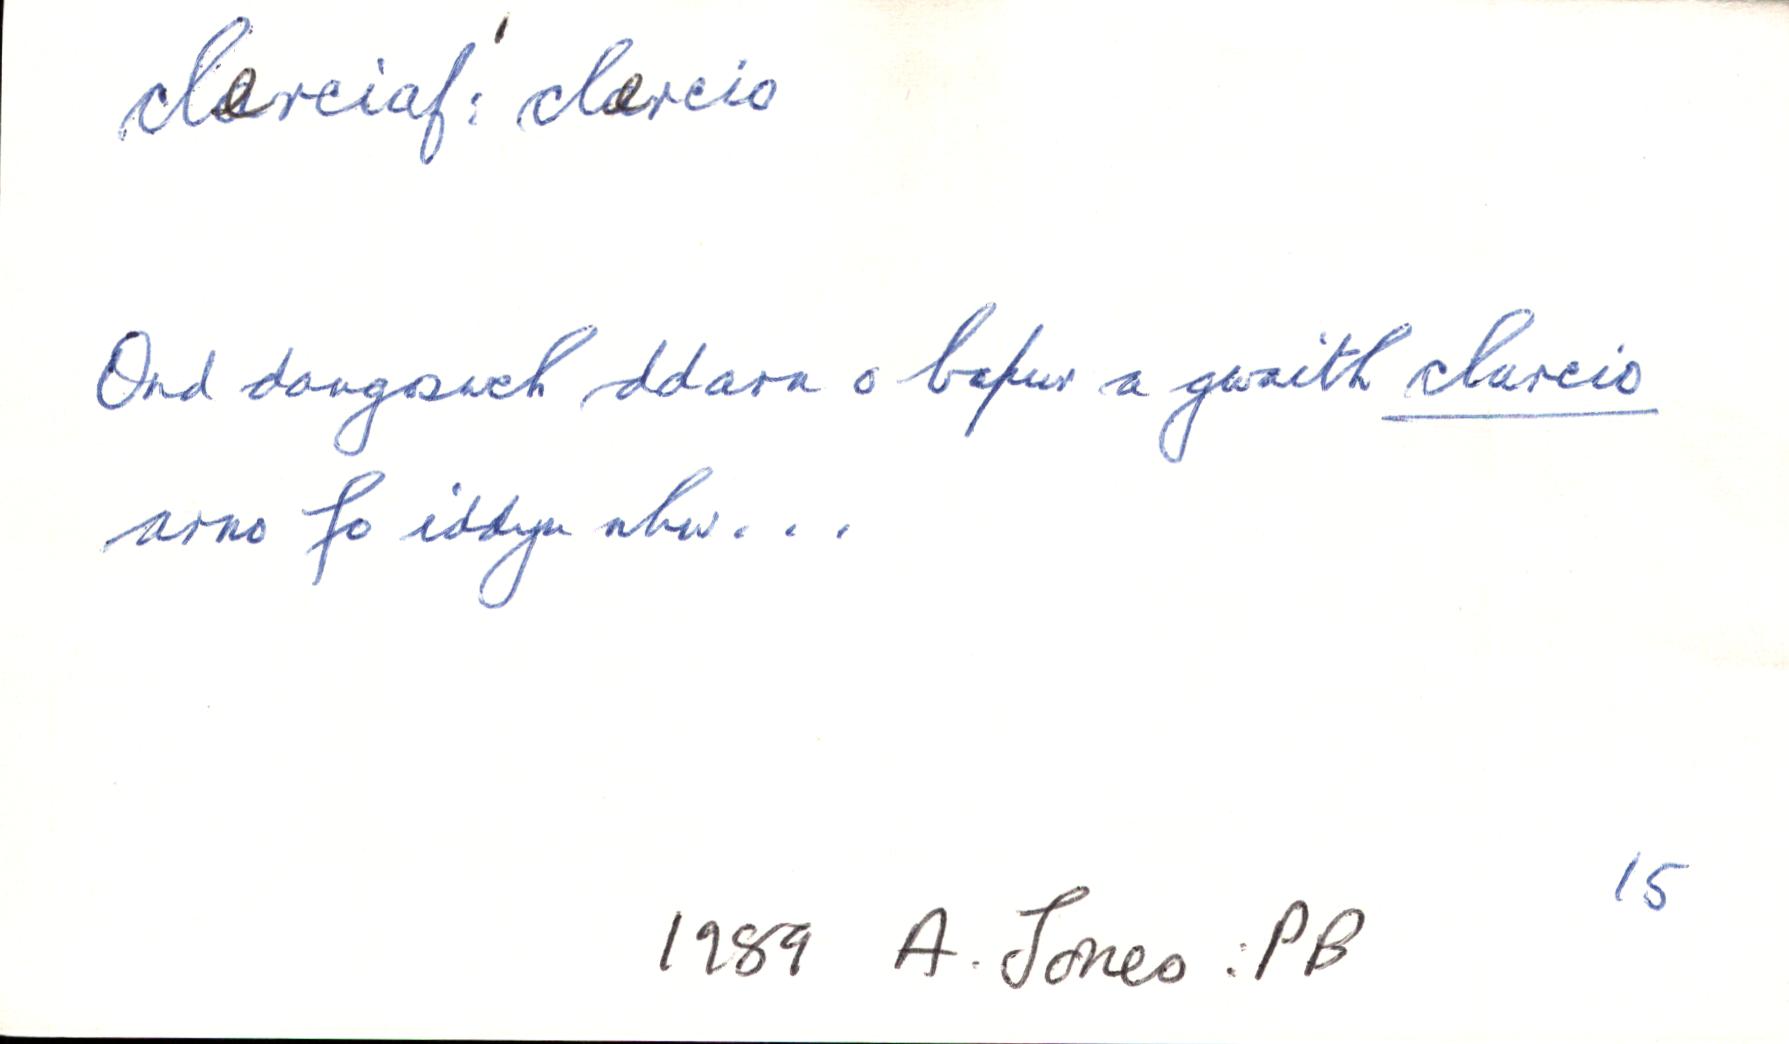 clerciaf¹: clercio
Ond dangoswch ddarn o bapur a gwaith clarcio
arno fo iddyn nhw...
15
1989 A. Jones: PB